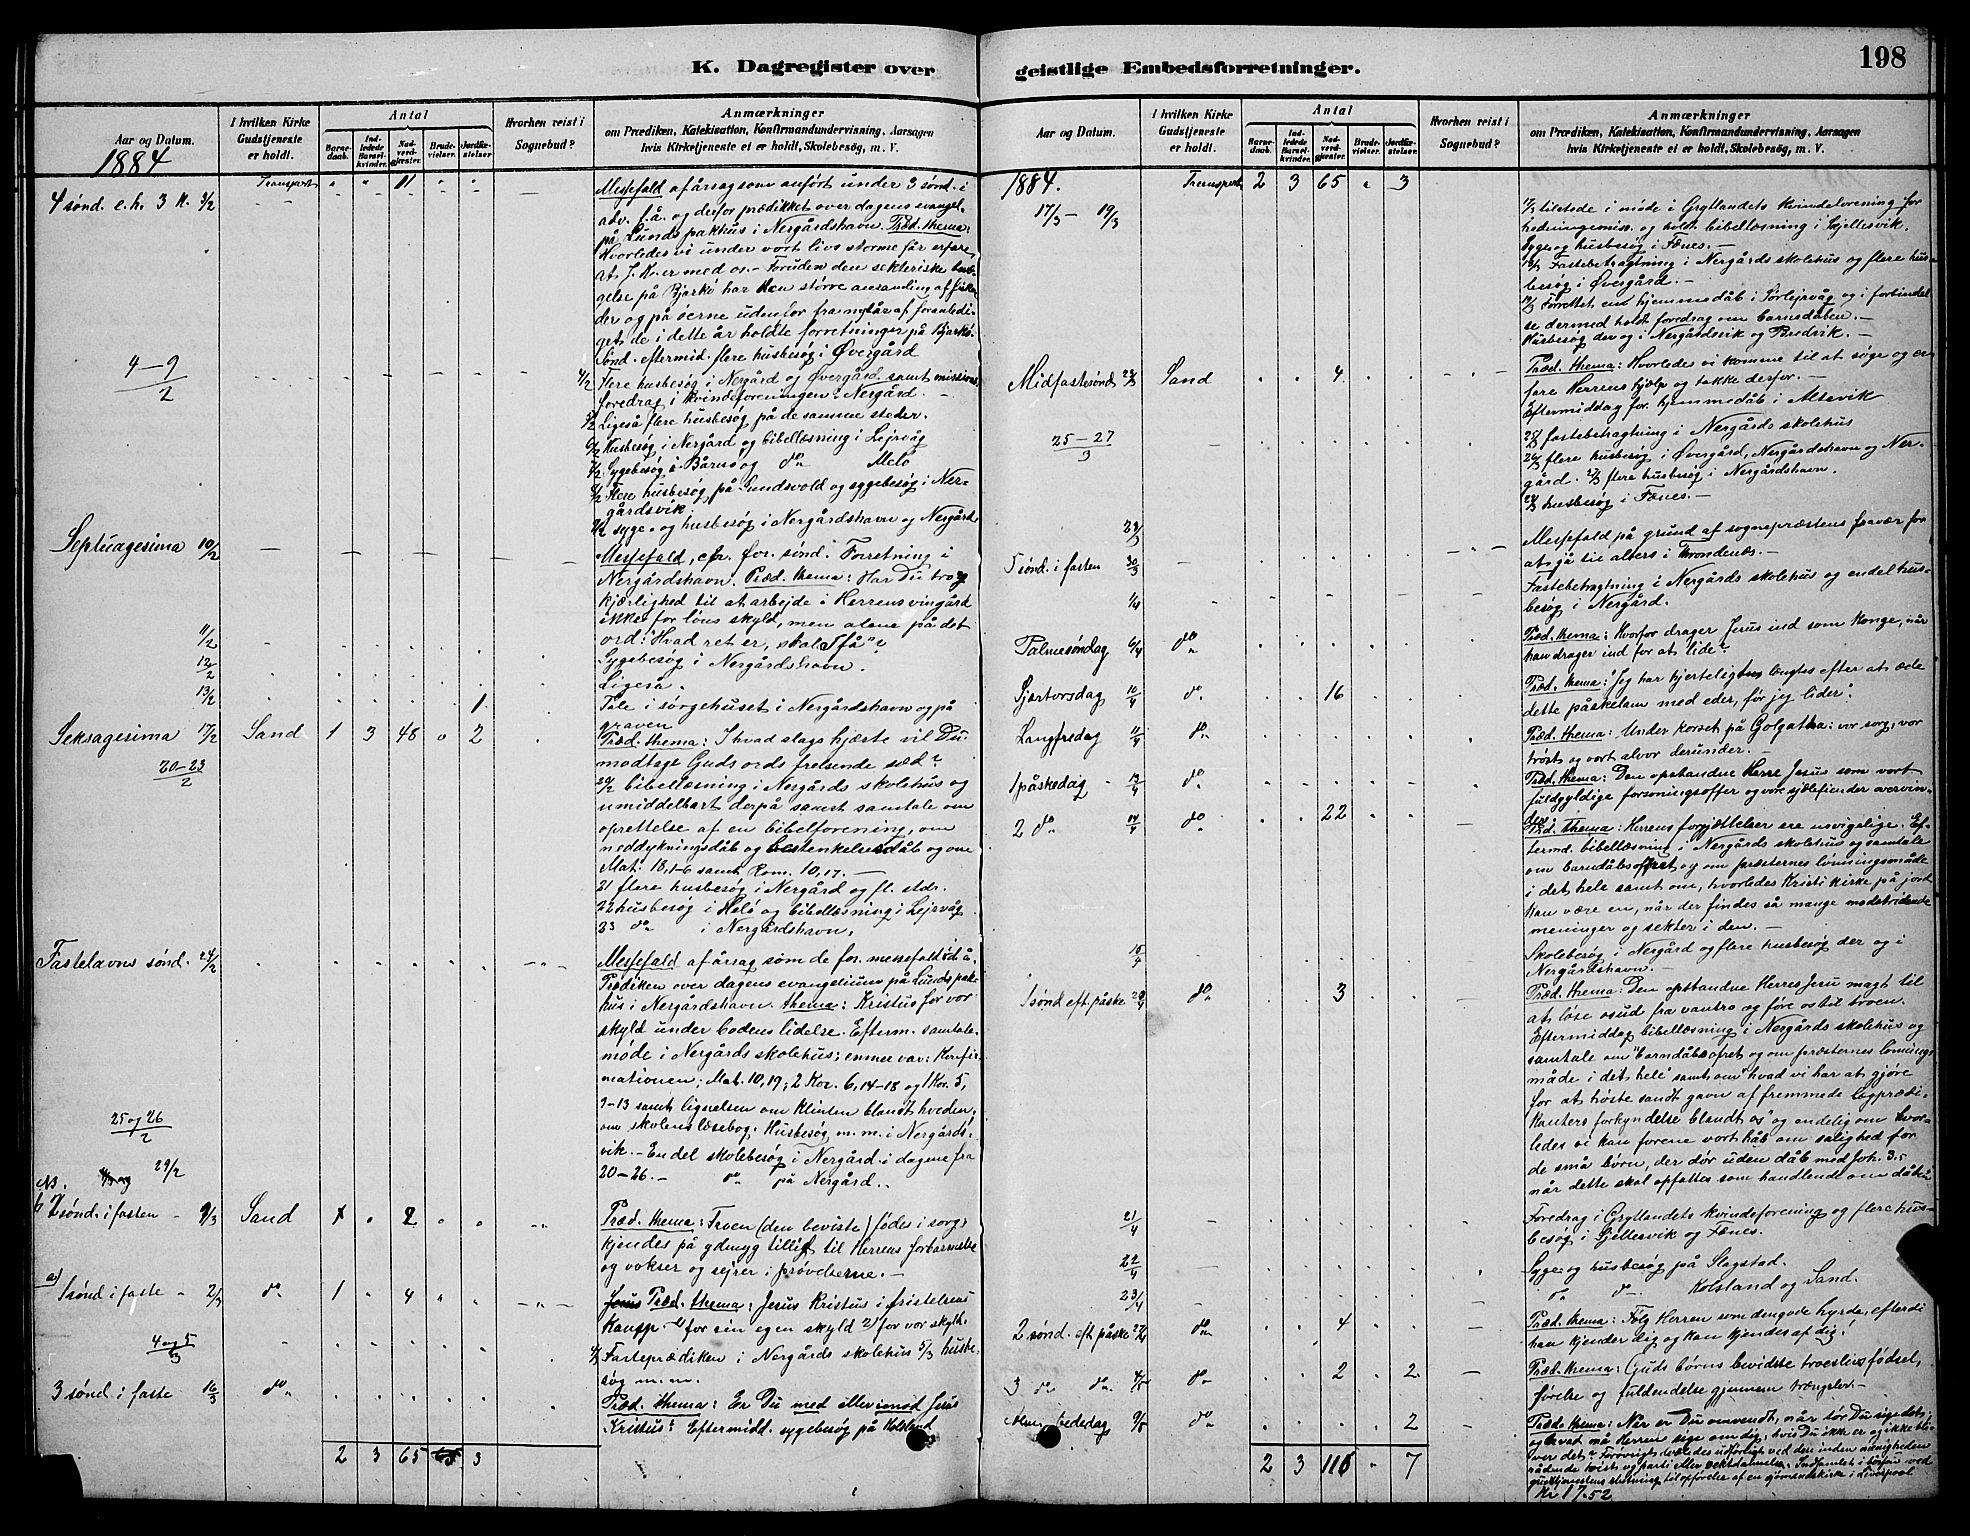 K. Dagregister over
Aar og Datum.
1884
I hvilken Kirke Gudstjeneste er holdt.
Antal
Barnedaab.
Indledede Barselkvinder.
Nadverdgjester.
Brudevielser.
Jordfæstelser.
Hvorhen reist i Sognebud?
Anmærkninger
om Prædiken, Katekisation, Konfirmandundervisning, Aarsagen
hvis Kirketjeneste ei er holdt, Skolebesøg, m. V.
Transport " " 11 " "
4 sønd. e. h. 3 K. 3/2
Messefald af årsag som anført under 3 sønd. i
adv. f. å. og derfor prædikket over dagens evangel.
på Lunds pakhus i Nergårdshavn. Præd. thema:
Hvorledes vi under vort livs storme får erfare
at J. K. er med os. – Foruden den sekteriske bevæ-
gelse på Bjarkø har den større ansamling af fiske-
der og på øerne udenfor fra nytår af foranledi-
get de i dette år holdte forretninger på Bjarkø.
Sønd. eftermid. flere husbesøg i Øvergård
4–9/2
4/2 flere husbesøg i Nergård og Øvergård samt missions
foredrag i Kvindeforeningen i Nergård.
5/2 Ligeså flere husbesøg på de samme steder.
6/2 Husbesøg i Nergård og bibellæsning i Lejrvåg
7/2 Sygebesøg i Bårnes og do Melø
8/2 Flere husbesøg på Sundsvold og sygebesøg i Ner-
gårdsvik
9/2 syge- og husbesøg i Nergårdshavn og Nergård
Septuagesima 10/2
Messefald, cfr. for. sønd. Forretning i
Nergårdshavn. Præd. thema: Har Du tro og
kjærlighed til at arbejde i Herrens vingård
ikke for løns skyld, men alene på det
ord: "Hvad ret er, skal I få"?
11/2
Sygebesøg i Nergårdshavn.
12/2
Ligeså.
13/2 1
Tale i sørgehuset i Nergårdshavn og på
graven
Seksagesima 17/2 Sand 1 3 48 " 2
Præd. thema: I hvad slags hjerte vil Du
modtage Guds ords frelsende sæd?
20–23/2
20/2 bibellæsning i Nergårds skolehus og
umiddelbart derpå samt samtale om
oprettelse af en bibelforening, om
neddykningsdåb og bestenkelsesdåb og om
Mat. 18,1-6 samt Rom. 10,17. –
21 flere husbesøg i Nergård og fl. stdr.
22 husbesøg i Melø og bibellæsning i Lejrvåg
23 do i Nergårdshavn.
Fastelavns sønd. 24/2
Messefald af årsag som de for. messefald i d. å.
Prædiken over dagens evangelium på Lunds pak-
hus i Nergårdshavn. thema: Kristus for vor
skyld under bodens lidelse. Efterm. samtale-
møde i Nergårds skolehus; emner var: Konfir-
mationen; Mat. 10,19; 2 Kor. 6,14-18 og 1 Kor. 5,
9–13 samt lignelsen om klinten blandt hveden;
om skolens læsebog. Husbesøg m. m. i Nergårds-
25 og 26/2
vik. – Endel skolebesøg i Nergård i dagene fra
20–26. – do på Nergård. –
29/2
NB.
b) 2 sønd. i fasten – 9/3 Sand 1 " 2
Præd. thema: Troen (den beviste) fødes i sorg
kjendes på ydmyg tillid til Herrens forbarmelse
og vokser og sejrer i prøvelserne. –
a) 1 sønd i faste – 2/3 do 1 " 4
Præd. thema: Jesus Kristus i fristelsens
kamp 1) for sin egen skyld 2) for vor skyld.
4 og 5/3
4/3 Fasteprædiken i Nergårds skolehus 5/3 husbe-
søg m. m.
3 sønd i faste 16/3 do
Præd. thema: Er Du med eller imod Jesus
Kristus? Eftermidd. sygebesøg på Kolstad
2 3 65 3
geistlige Embedsforretninger.
198
Aar og Datum.
I hvilken Kirke Gudstjeneste er holdt.
Antal
Barnedaab.
Indledede Barselkvinder.
Nadverdgjester.
Brudevielser.
Jordfæstelser.
Hvorhen reist i Sognebud?
Anmærkninger
om Prædiken, Katekisation, Konfirmandundervisning, Aarsagen
hvis Kirketjeneste ei er holdt, Skolebesøg, m. V.
1884. Transport 2 3 65 " 3
17/3 – 19/3
17/3 tilstede i møde i Gryllandets kvindeforening for
hedningemiss. og holdt bibellæsning i Kjellesvik.
Syge og husbesøg i Fænes. –
18/3 Fastebetragtning i Nergårds skolehus og flere hus-
besøg i Øvergård. –
19/3 Forrettet en hjemmedåb i Sørlejrvåg og i forbindel-
se dermed holdt foredrag om barnedåben. –
Husbesøg der og i Nergårdsvik og Bredvik. –
Midfastesønd. 23/3 Sand 4
Præd. thema: Hvorledes vi komme til at søge og er-
fare Herrens hjælp og takke derfor. –
Eftermiddag for. hjemmedåb i Alsvik
25–27/3
25/3 fastebetragtning i Nergårds skolehus
26/3 flere husbesøg i Øvergård, Nergårdshavn og Ner-
gård. 27/3 flere husbesøg i Nergårdshavn.
28/3 husbesøg i Fænes. –
28/3
5 sønd. i fasten 30/3
Messefald på grund af sognepræstens fravær for
at gå til alters i Throndenæs. –
1/4
Fastebetragtning i Nergårds skolehus og endel hus-
besøg i Nergård.
Palmesøndag 6/4 do
Præd. thema: Hvorfor drager Jesus ind som konge, når
han drager ind for at lide?
Skjærtorsdag 10/4 do 16
Præd. thema: "Jeg har hjerteligen længtes efter at æde
dette påskelam med eder, før jeg lider".
Langfredag 11/4 do
Præd. thema: Under korset på Golgatha: vor sorg, vor
trøst og vort alvor derunder. –
1 påskedag – 13/4 do
Præd. thema: Den opstandne Herre Jesus som vort
fuldgyldige forsoningsoffer og vore sjælefienders overvin-
der.
2 do 14/4 do 22
Præd. thema: Herrens forjættelser ere usvigelige. Ef-
termd. bibellæsning i Nergårds skolehus og samtale
om barndåbsofret og om præsternes lønningsmåde
i det hele samt om, hvorledes Kristi kirke på jord
kan være en, når der findes så mange modstridende
meninger og sekter i den. –
15/4
Skolebesøg i Nergård og flere husbesøg der og i
Nergårdshavn. –
1 sønd eft. påske 20/4 do 3
Præd. thema: Den opstandne Herres Jesu magt til
at løse os ud fra vantro og føre os til troen.
Eftermiddag bibellæsning i Nergårds skolehus og
samtale om "barndåbsofret og om præsternes lønnings-
måde i det hele" samt om "hvad vi har at gjøre
for at høste sandt gavn af fremmede lægprædi-
kanters forkyndelse blandt os" og endelig om hvor-
ledes vi kan forene vort håb om salighed for
de små børn, der dør uden dåb med Joh. 3.5
når dette skal opfattes som handlende om dåben
21/4
Foredrag i Gryllandets kvindeforening og flere hus-
besøg i Gjellesvik og Fænes.
22/4
Syge og husbesøg på Slagstad.
23/4
do do Kolstand og Sand.
2 sønd. eft påske 27/4 do 4
Præd. thema: Følg Herren som den gode hyrde, efterdi
han kjender dig og kan kjendes af dig!
3 do do 4/5 do 2 2
Præd. thema: Guds børns bevidste troeslivs fødsel,
førelse og fuldendelse gjennem trængsler. –
Alm. bededag 9/5 do 2
Præd. thema: Når er Du omvendt, når tør Du sige det,
og hvad må Herren sige om dig, hvis Du ikke er og ikke bli-
ver det?
2 3 116 " 7
Kr 17.52